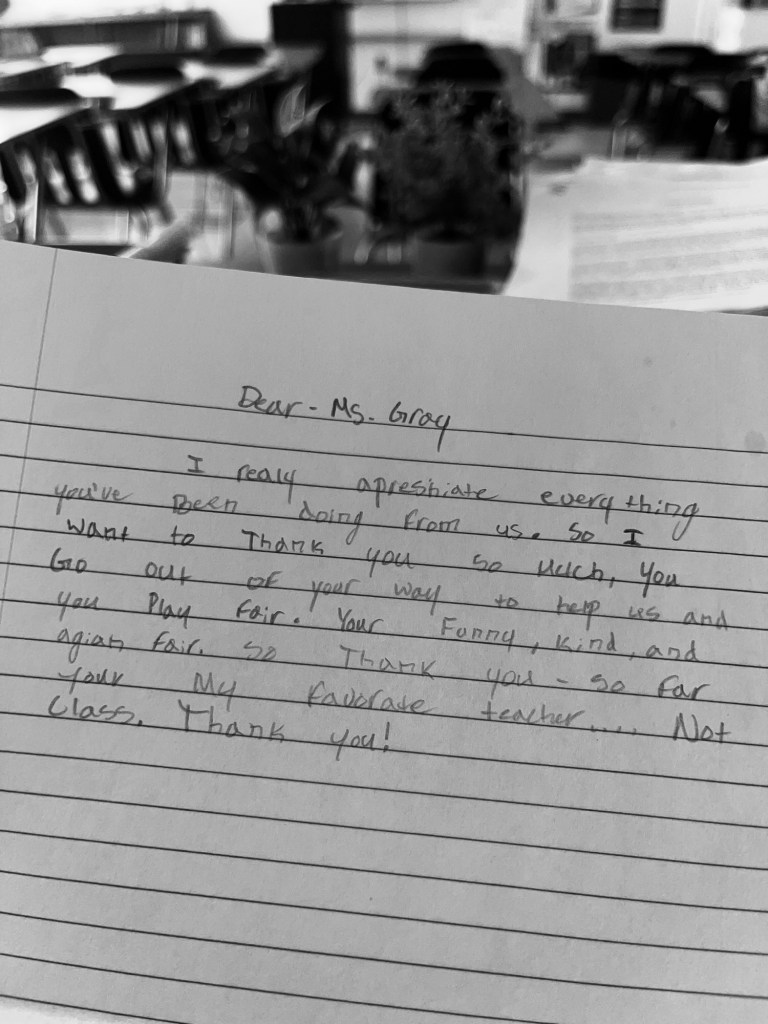 Dear - Ms. Gray
I realy apreshiate everything
you've Been doing from us. So I
want to Thank you so much, you
Go out of your way to help us and
you Play fair. Your Funny, kind, and
agian fair. So Thank you - so far
your My favorate teacher.... Not
Class. Thank you!